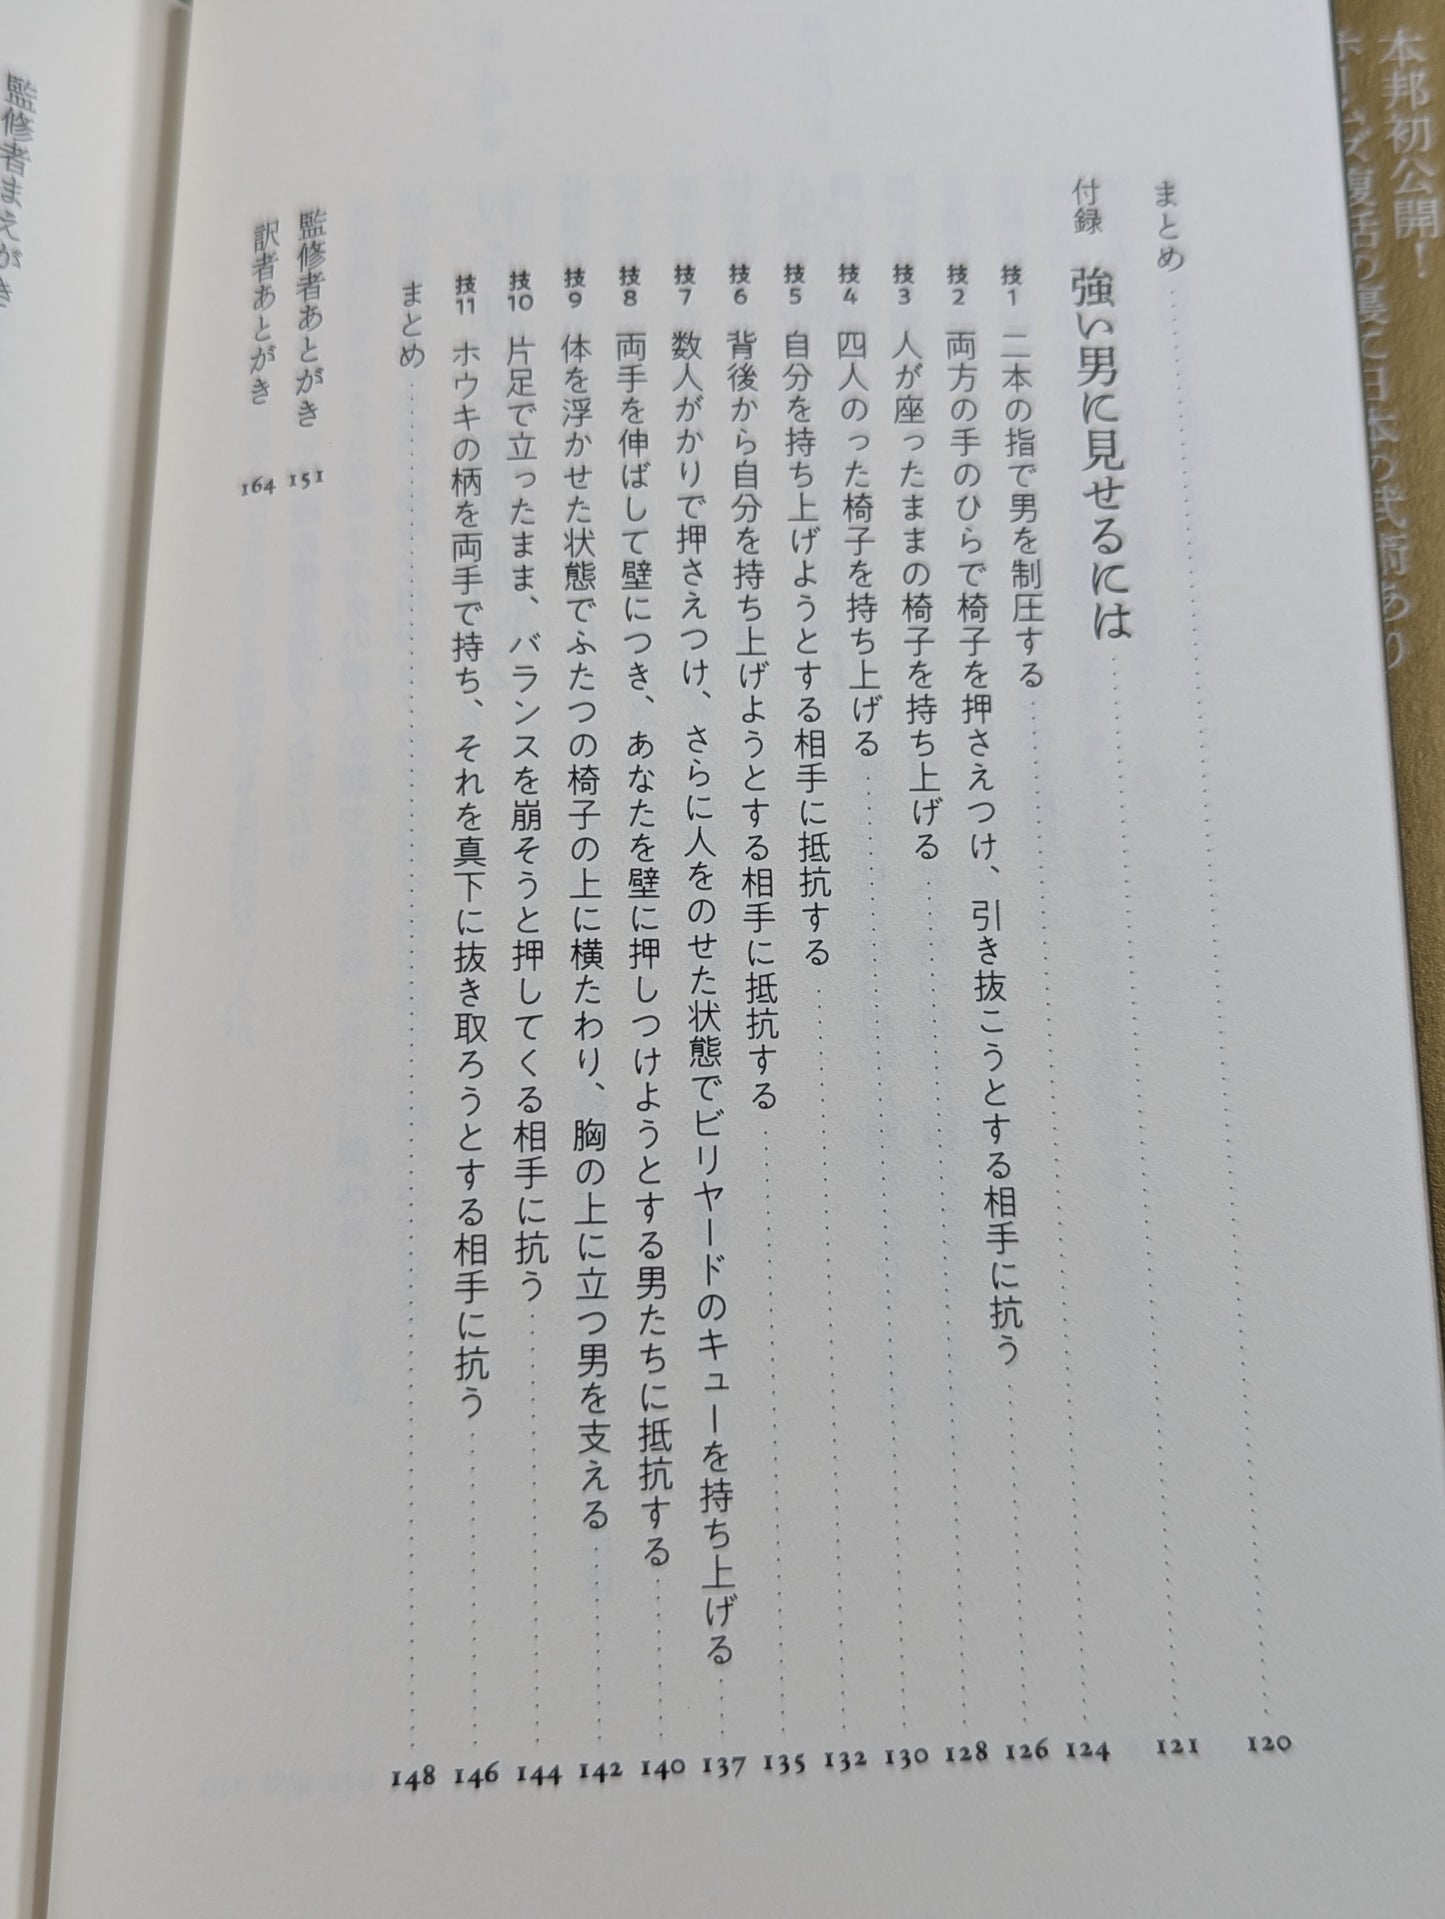 本邦初公開！
ズ復活の裏に日本の武術あり
まとめ 120
付録 強い男に見せるには 121
技1 二本の指で男を制圧する 124
技2 両方の手のひらで椅子を押さえつけ、引き抜こうとする相手に抗う 126
技3 人が座ったままの椅子を持ち上げる 128
技4 四人のった椅子を持ち上げる 130
技5 自分を持ち上げようとする相手に抵抗する 132
技6 背後から自分を持ち上げようとする相手に抵抗する 135
技7 数人がかりで押さえつけ、さらに人をのせた状態でビリヤードのキューを持ち上げる 137
技8 両手を伸ばして壁につき、あなたを壁に押しつけようとする男たちに抵抗する 140
技9 体を浮かせた状態でふたつの椅子の上に横たわり、胸の上に立つ男を支える 142
技10 片足で立ったまま、バランスを崩そうと押してくる相手に抗う 144
技11 ホウキの柄を両手で持ち、それを真下に抜き取ろうとする相手に抗う 146
まとめ 148
監修者あとがき 151
訳者あとがき 164
監修者まえがき